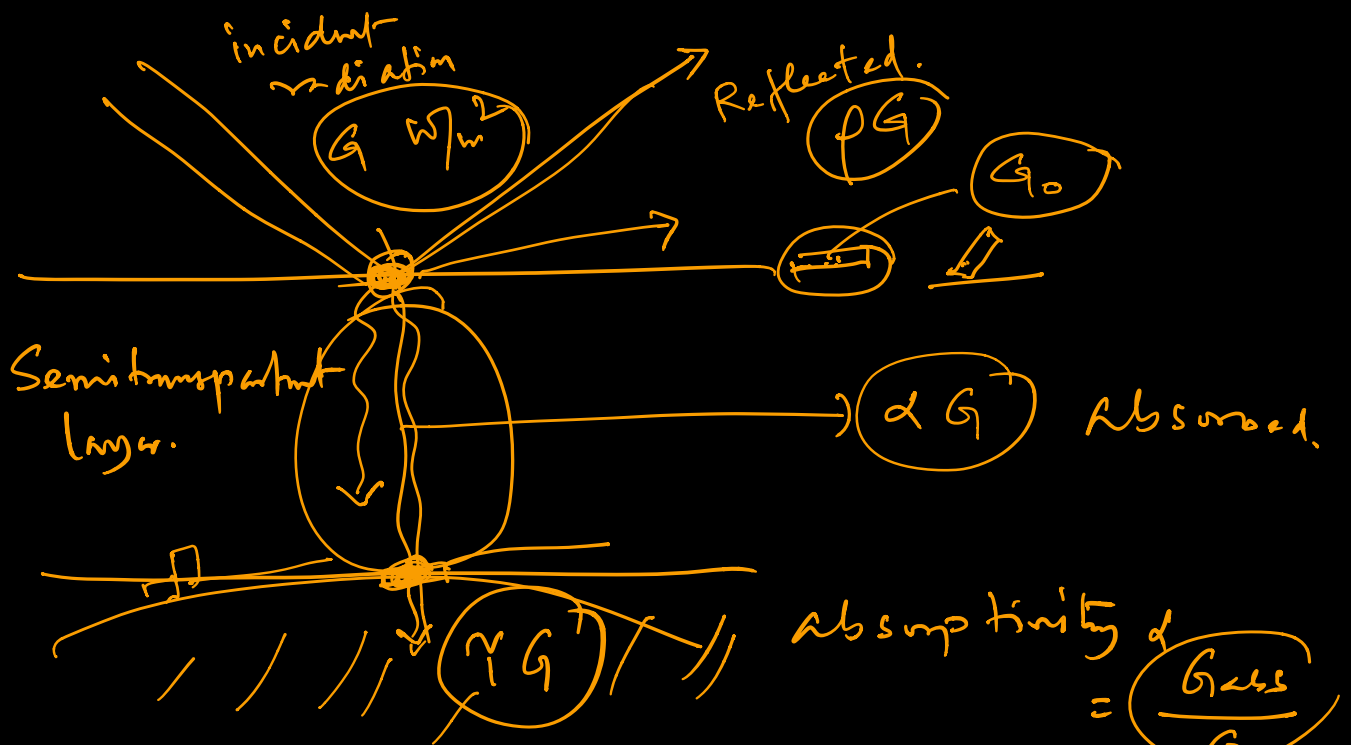 incident
radiation
G W/m²
Reflected.
ρG
G₀
Semitransparent
layer.
αG
Absorbed.
τG
Absorptivity α
= Gabs
G